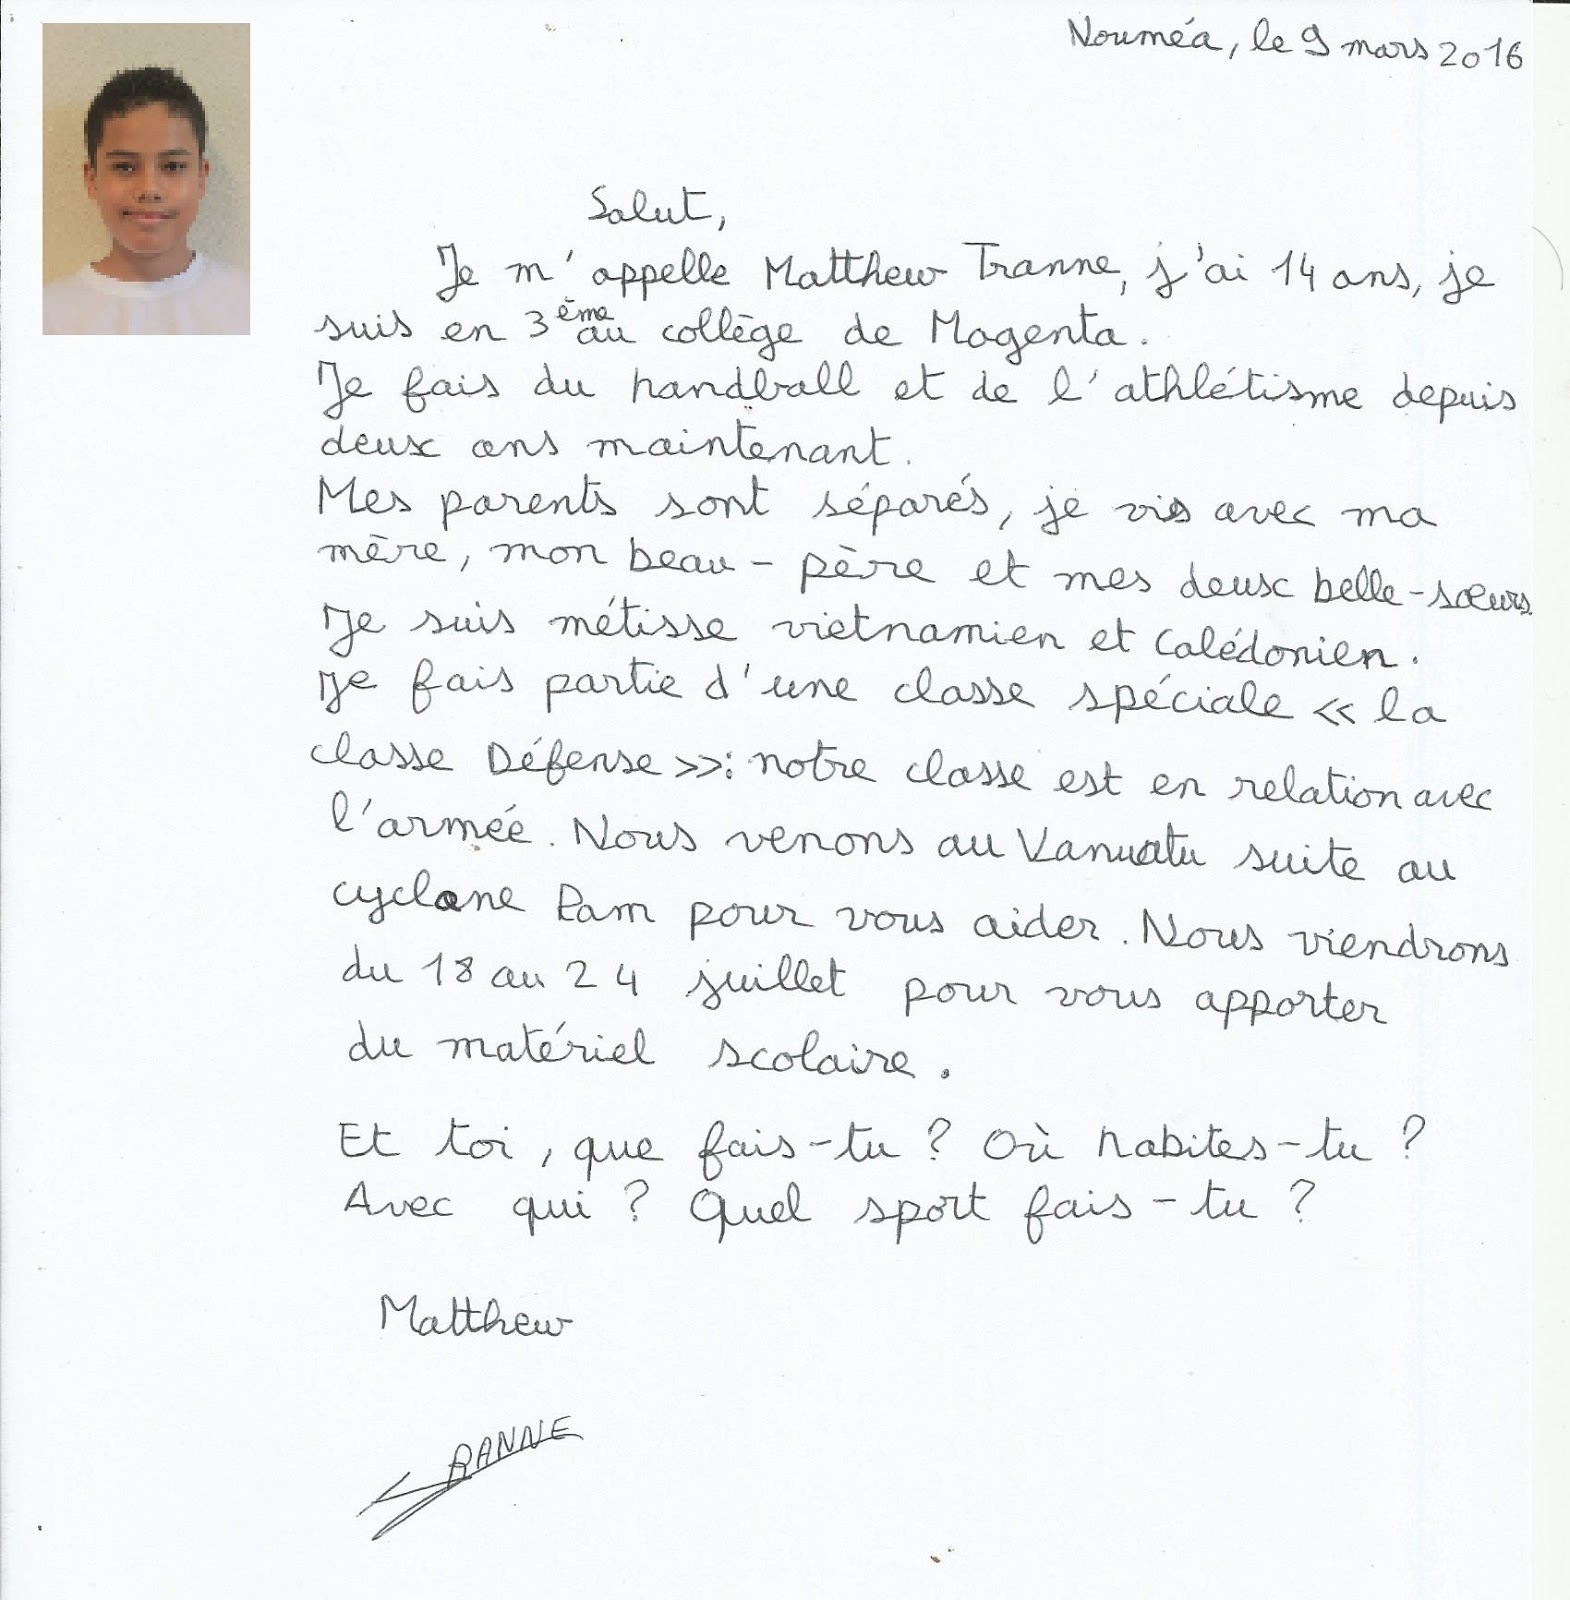 Nouméa, le 9 mars 2016
Salut,
Je m'appelle Matthew Tranne, j'ai 14 ans, je
suis en 3ème au collège de Magenta.
Je fais du handball et de l'athlétisme depuis
deux ans maintenant.
Mes parents sont séparés, je vis avec ma
mère, mon beau-père et mes deux belle-sœurs.
Je suis métisse vietnamien et Calédonien.
Je fais partie d'une classe spéciale << la
classe Défense >>: notre classe est en relation avec
l'armée. Nous venons au Vanuatu suite au
cyclone Pam pour vous aider. Nous viendrons
du 18 au 24 juillet pour vous apporter
du matériel scolaire.
Et toi, que fais-tu ? Où habites-tu ?
Avec qui ? Quel sport fais-tu ?
Matthew
TRANNE